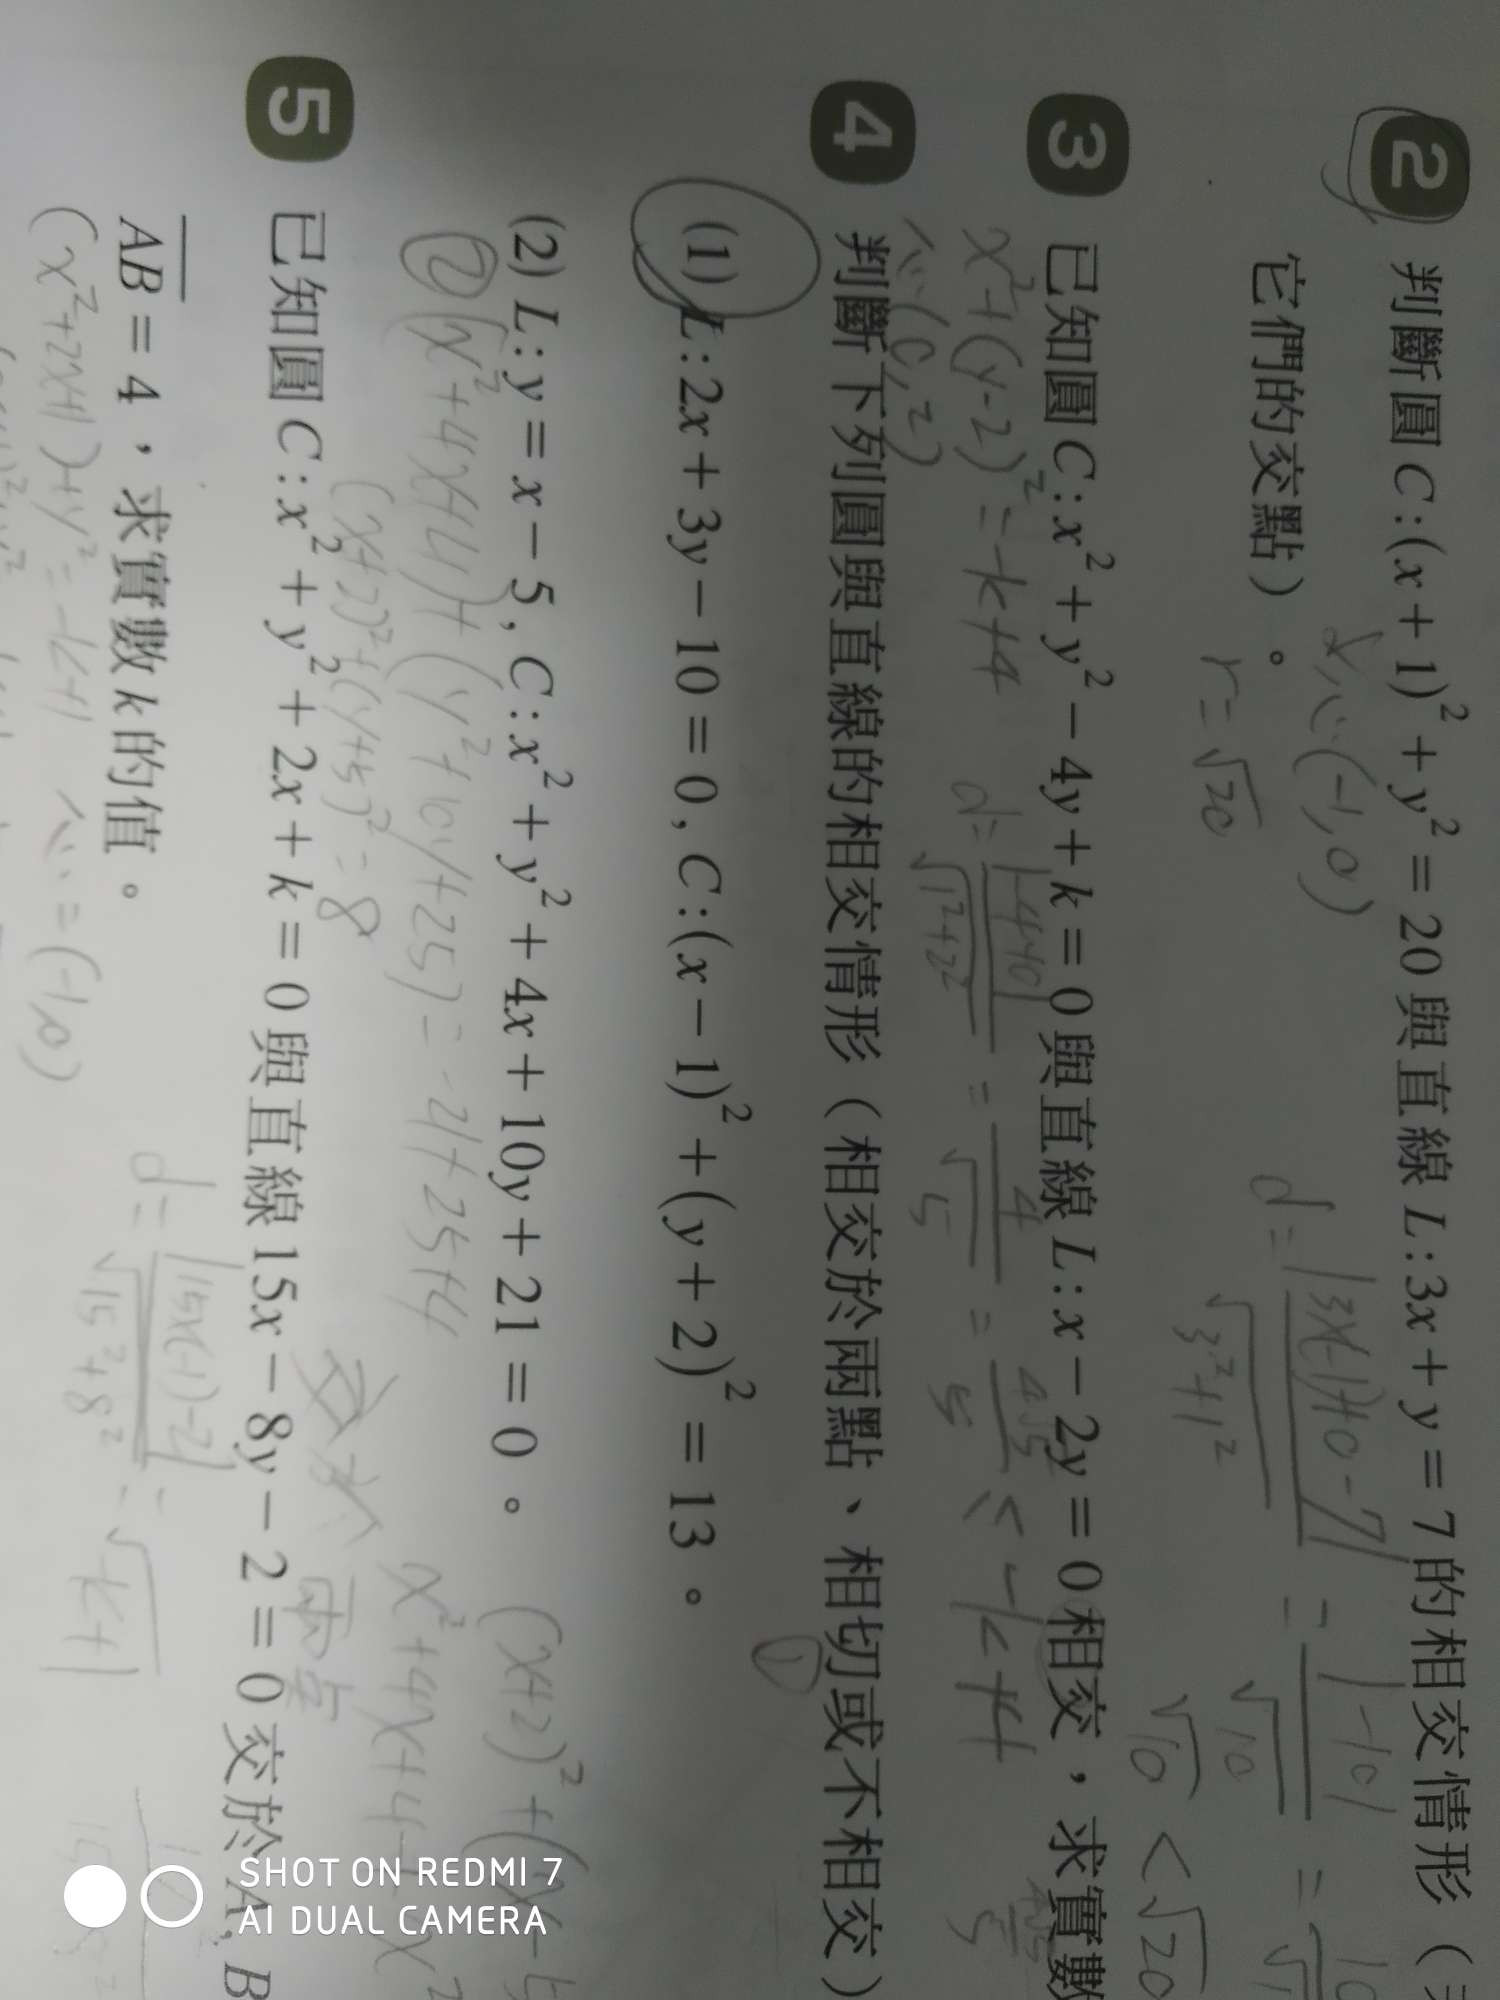 2 判斷圓 C:(x+1)²+y²=20 與直線 L:3x+y=7 的相交情形（
(-1,0)
它們的交點）。
r=√20
d= |3x(-1)+0-7| / √3²+1² = |-10| / √10 =
√10 < √20
3 已知圓 C:x²+y²-4y+k=0 與直線 L:x-2y=0 相交，求實數
x²+(y-2)²=-k+4
(0,2)
d= |-4+0| / √1²+2² = 4/√5 = 4√5/5 < -k+4
4 判斷下列圓與直線的相交情形（相交於兩點、相切或不相交）
(1) L:2x+3y-10=0, C:(x-1)²+(y+2)²=13。
(2) L:y=x-5, C:x²+y²+4x+10y+21=0。
② (x²+4x+4)+(y²+10y+25)=-21+25+4
(x+2)²+(y+5)²=8
5 已知圓 C:x²+y²+2x+k=0 與直線 15x-8y-2=0 交於 A, B
AB=4，求實數 k 的值。
(x²+2x+1)+y²=-k+1 心=(-1,0)
d= |15x(-1)-2| / √15²+8² = √-k+1
SHOT ON REDMI 7
AI DUAL CAMERA